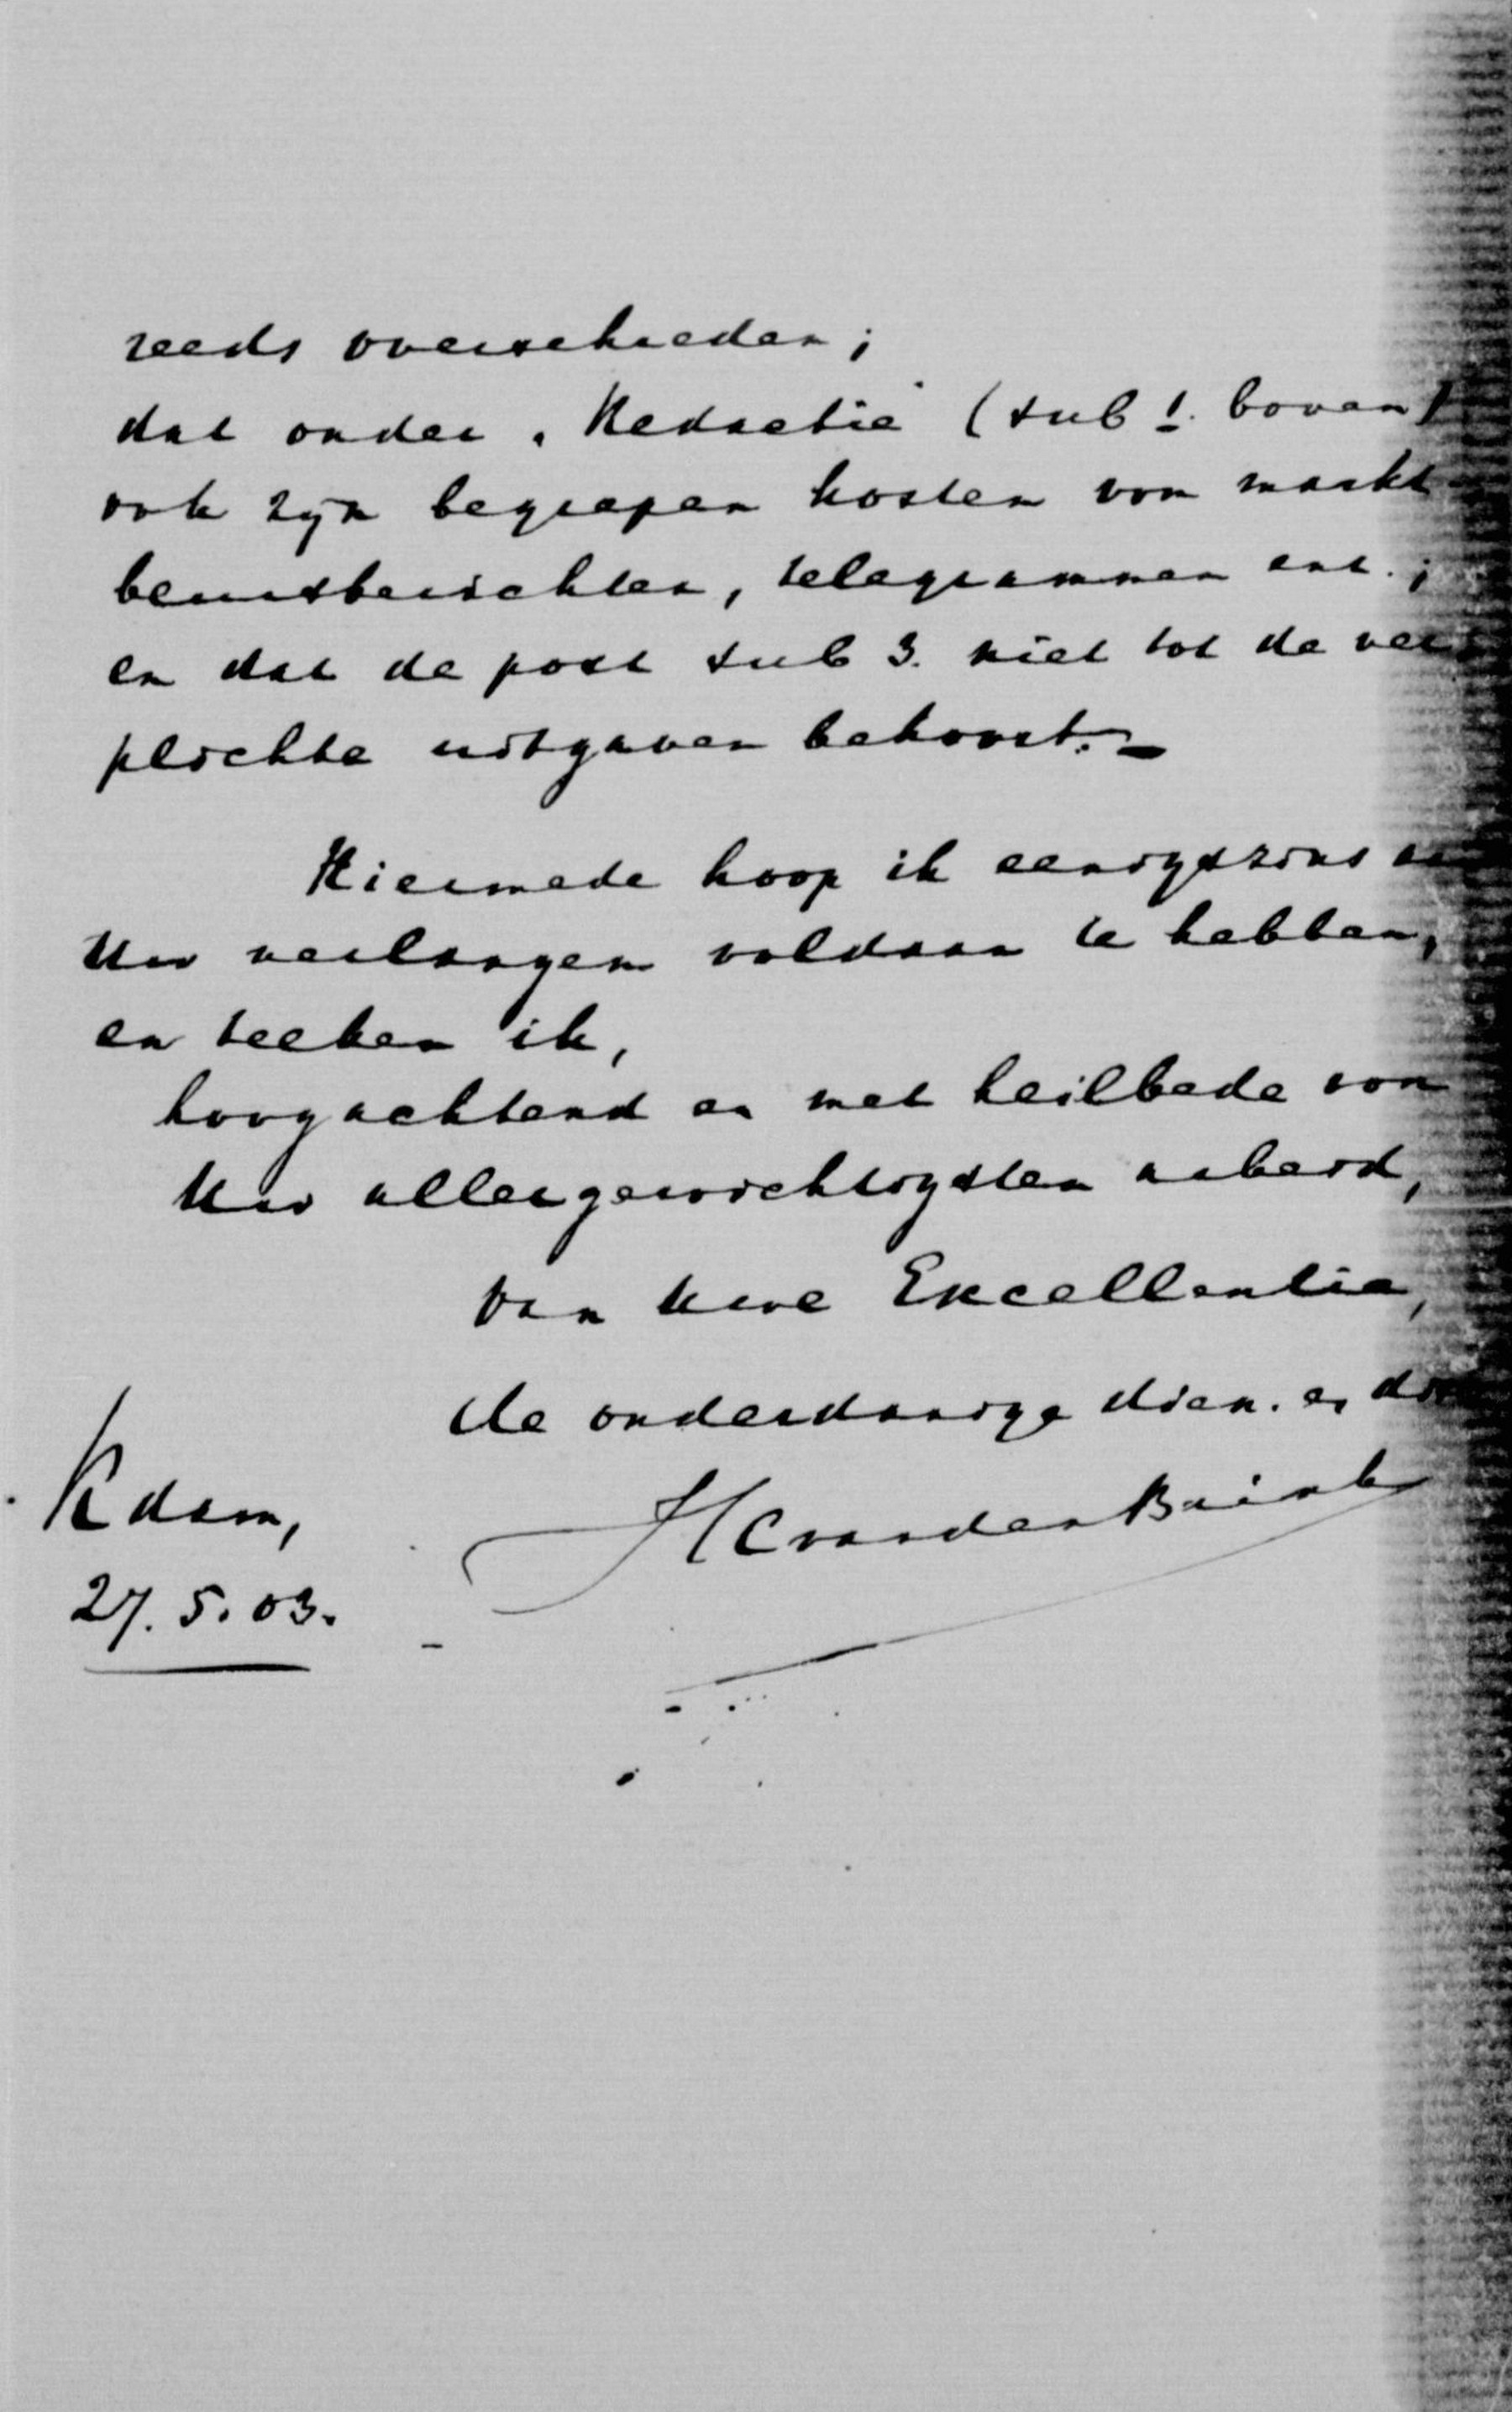 reeds overschreden;
dat onder „Redactie" (sub 1. boven)
ook zijn begrepen kosten van markt
beursberichten, telegrammen enz.;
en dat de post sub 3. niet tot de ver-
plichte uitgaven behoort.—
Hiermede hoop ik eenigszins aan
Uw verlangen voldaan te hebben,
en teeken ik,
hoogachtend en met heilbede voor
Uw allergewichtigsten arbeid,
Van Uwe Excellentie,
de onderdanige dien. en
HCvandenBrink
Rdam,
27.5.03.